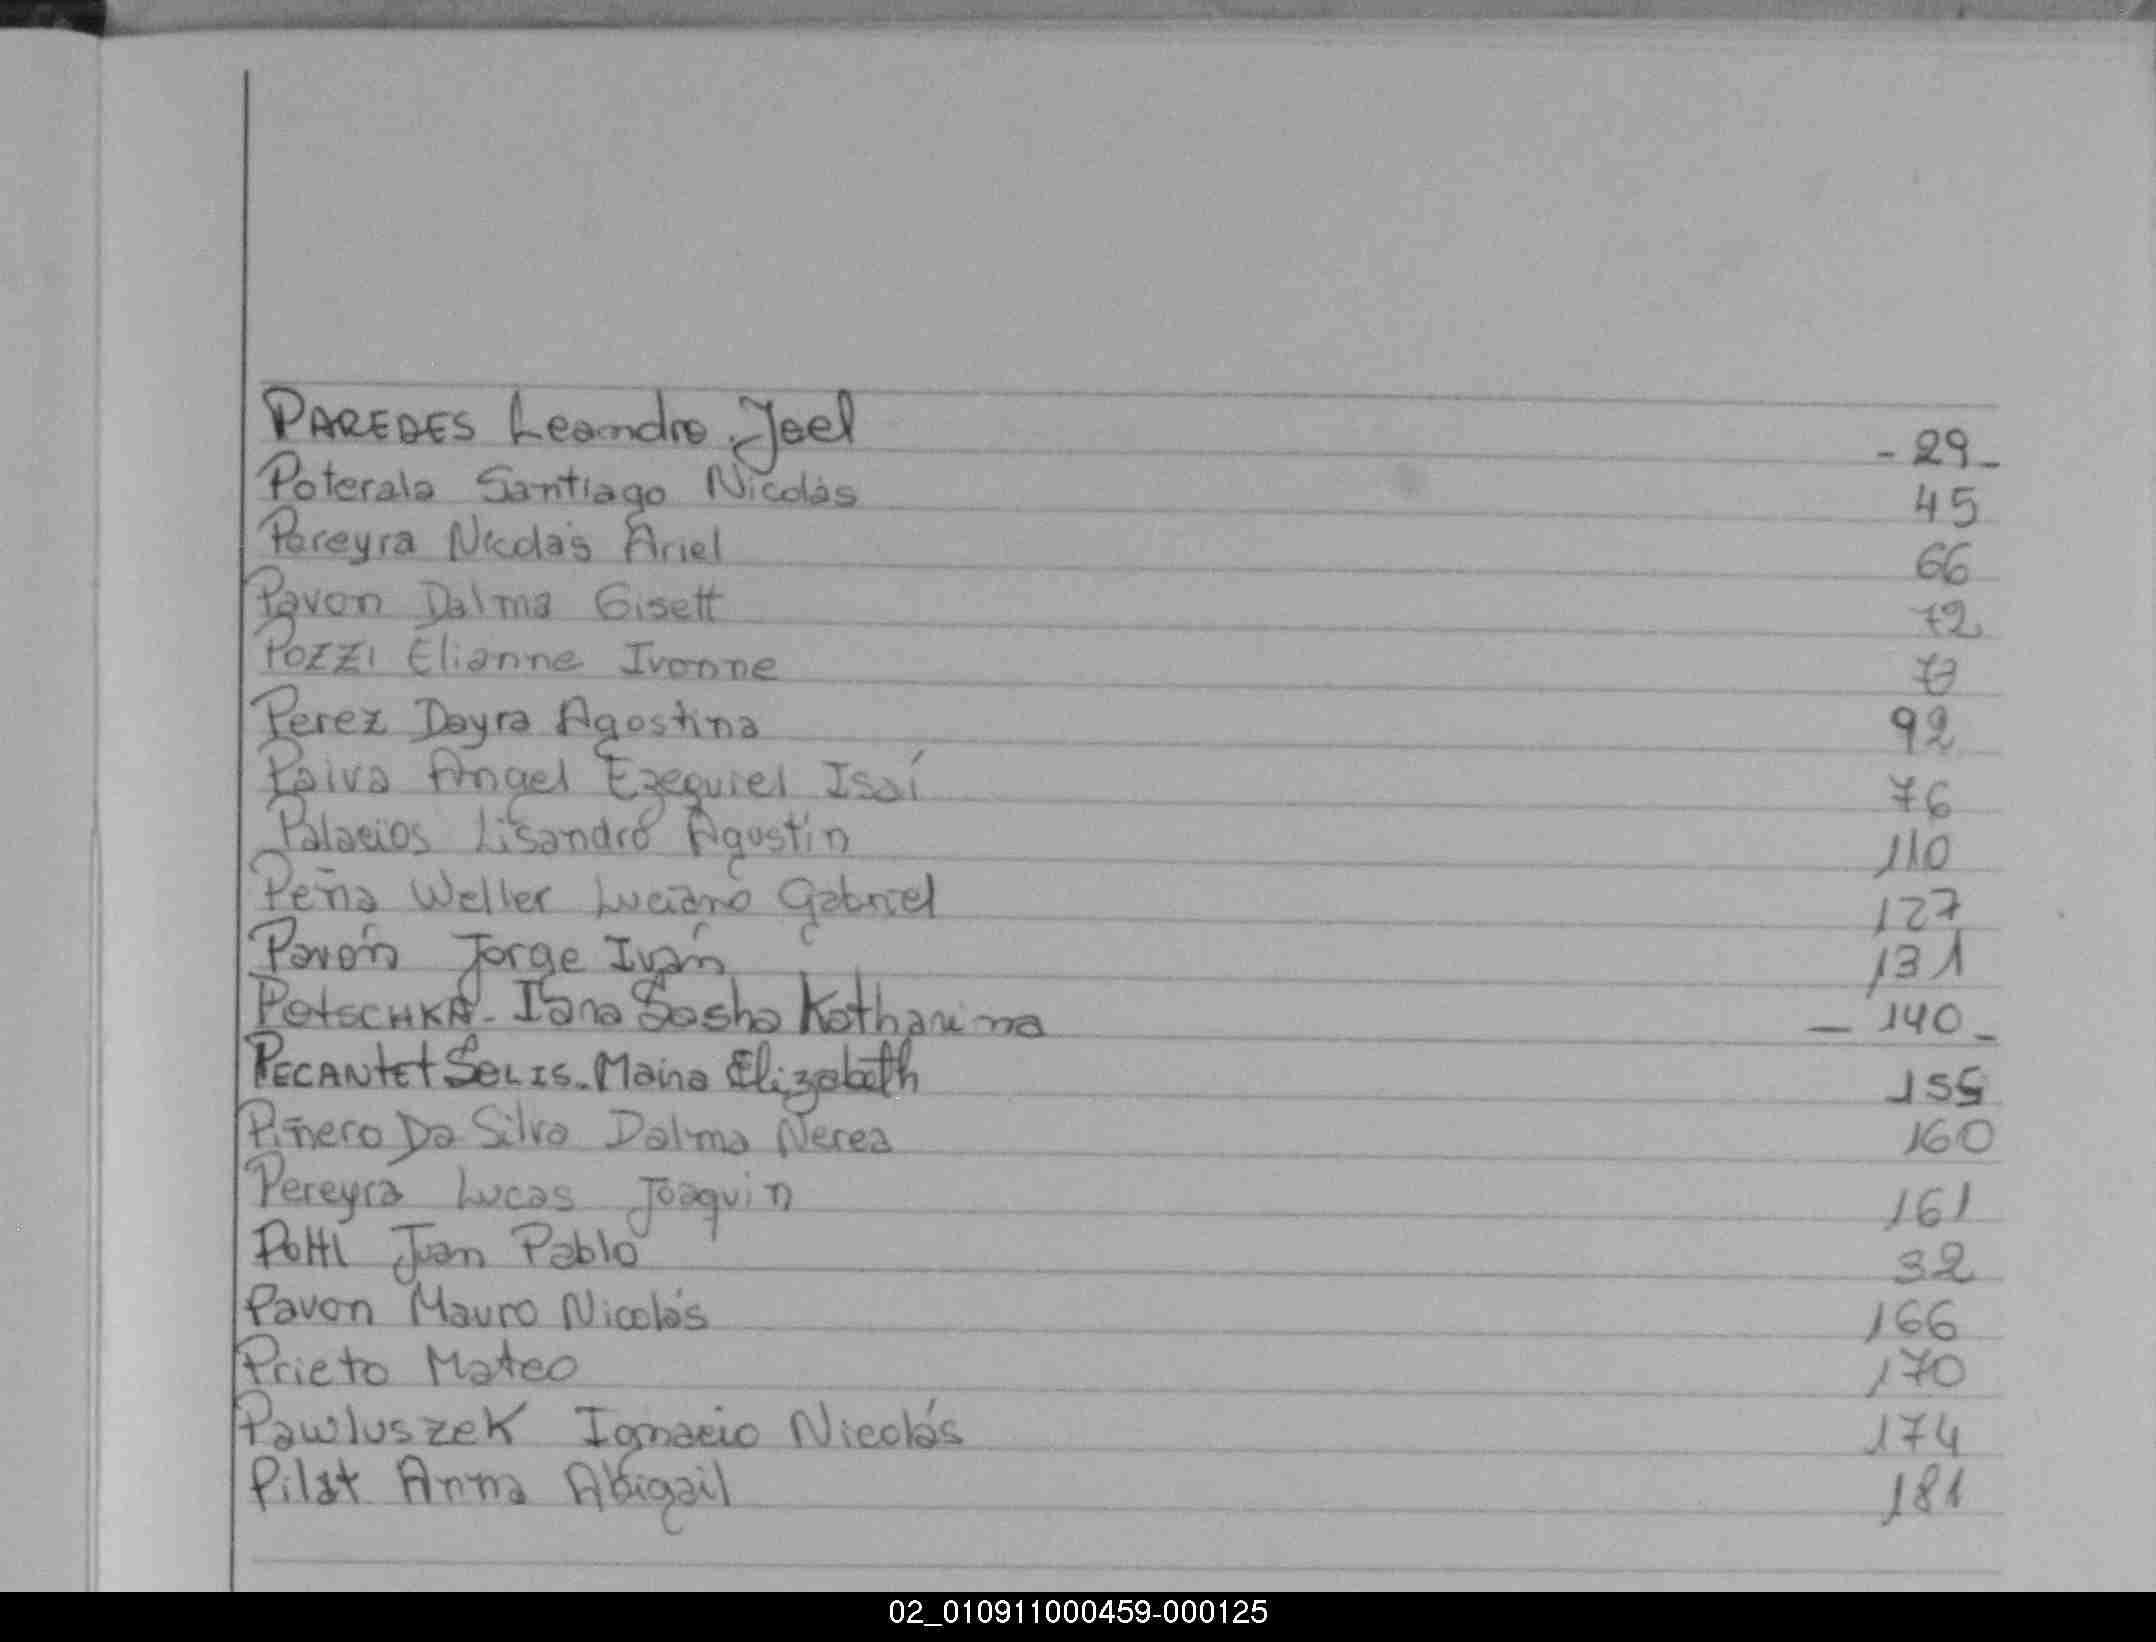 PAREDES Leandro Joel - 29 -
Poterala Santiago Nicolás 45
Pereyra Nicolás Ariel 66
Pavon Dalma Gisett 72
POZZI Elianne Ivonne
Perez Dayra Agostina 92
Paiva Angel Ezequiel Isaí 76
Palacios Lisandro Agustín 110
Peña Weller Luciano Gabriel 127
Pavón Jorge Iván 131
POTSCHKA - Iana Sasha Katharina - 140 -
PECANTET SOLIS - Maina Elizabeth 155
Piñero Da Silva Dalma Nerea 160
Pereyra Lucas Joaquin 161
Pottl Juan Pablo 32
Pavon Mauro Nicolás 166
Prieto Mateo 170
Pawluszek Ignacio Nicolás 174
Pilat Anna Abigail 181
02_010911000459-000125